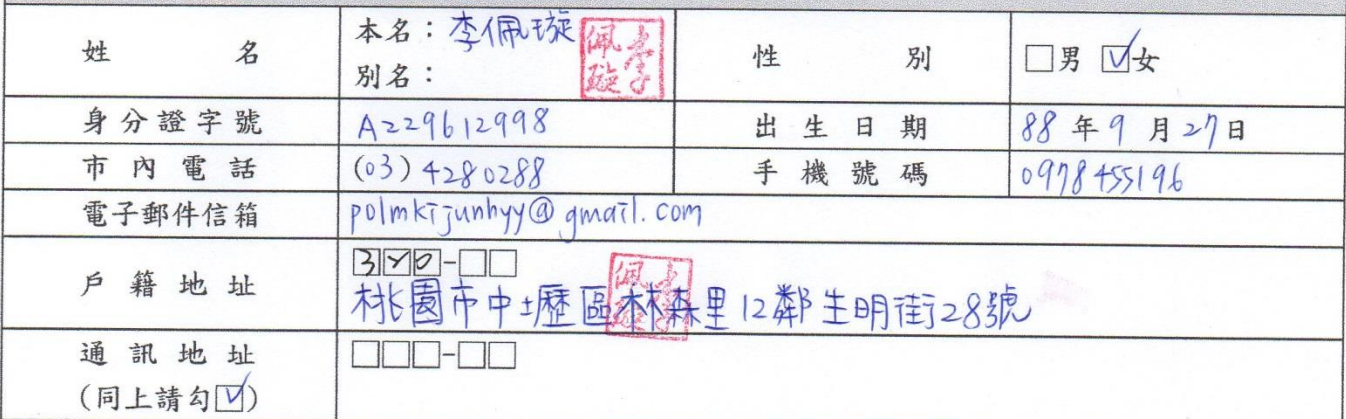 姓名 本名：李佩璇 性別 □男 ☑女
別名：
身分證字號 A229612998 出生日期 88年9月27日
市內電話 (03)4280288 手機號碼 0978455196
電子郵件信箱 polmkijunhyy@gmail.com
戶籍地址 320-□□
桃園市中壢區林森里12鄰生明街28號
通訊地址 □□□-□□
(同上請勾☑)